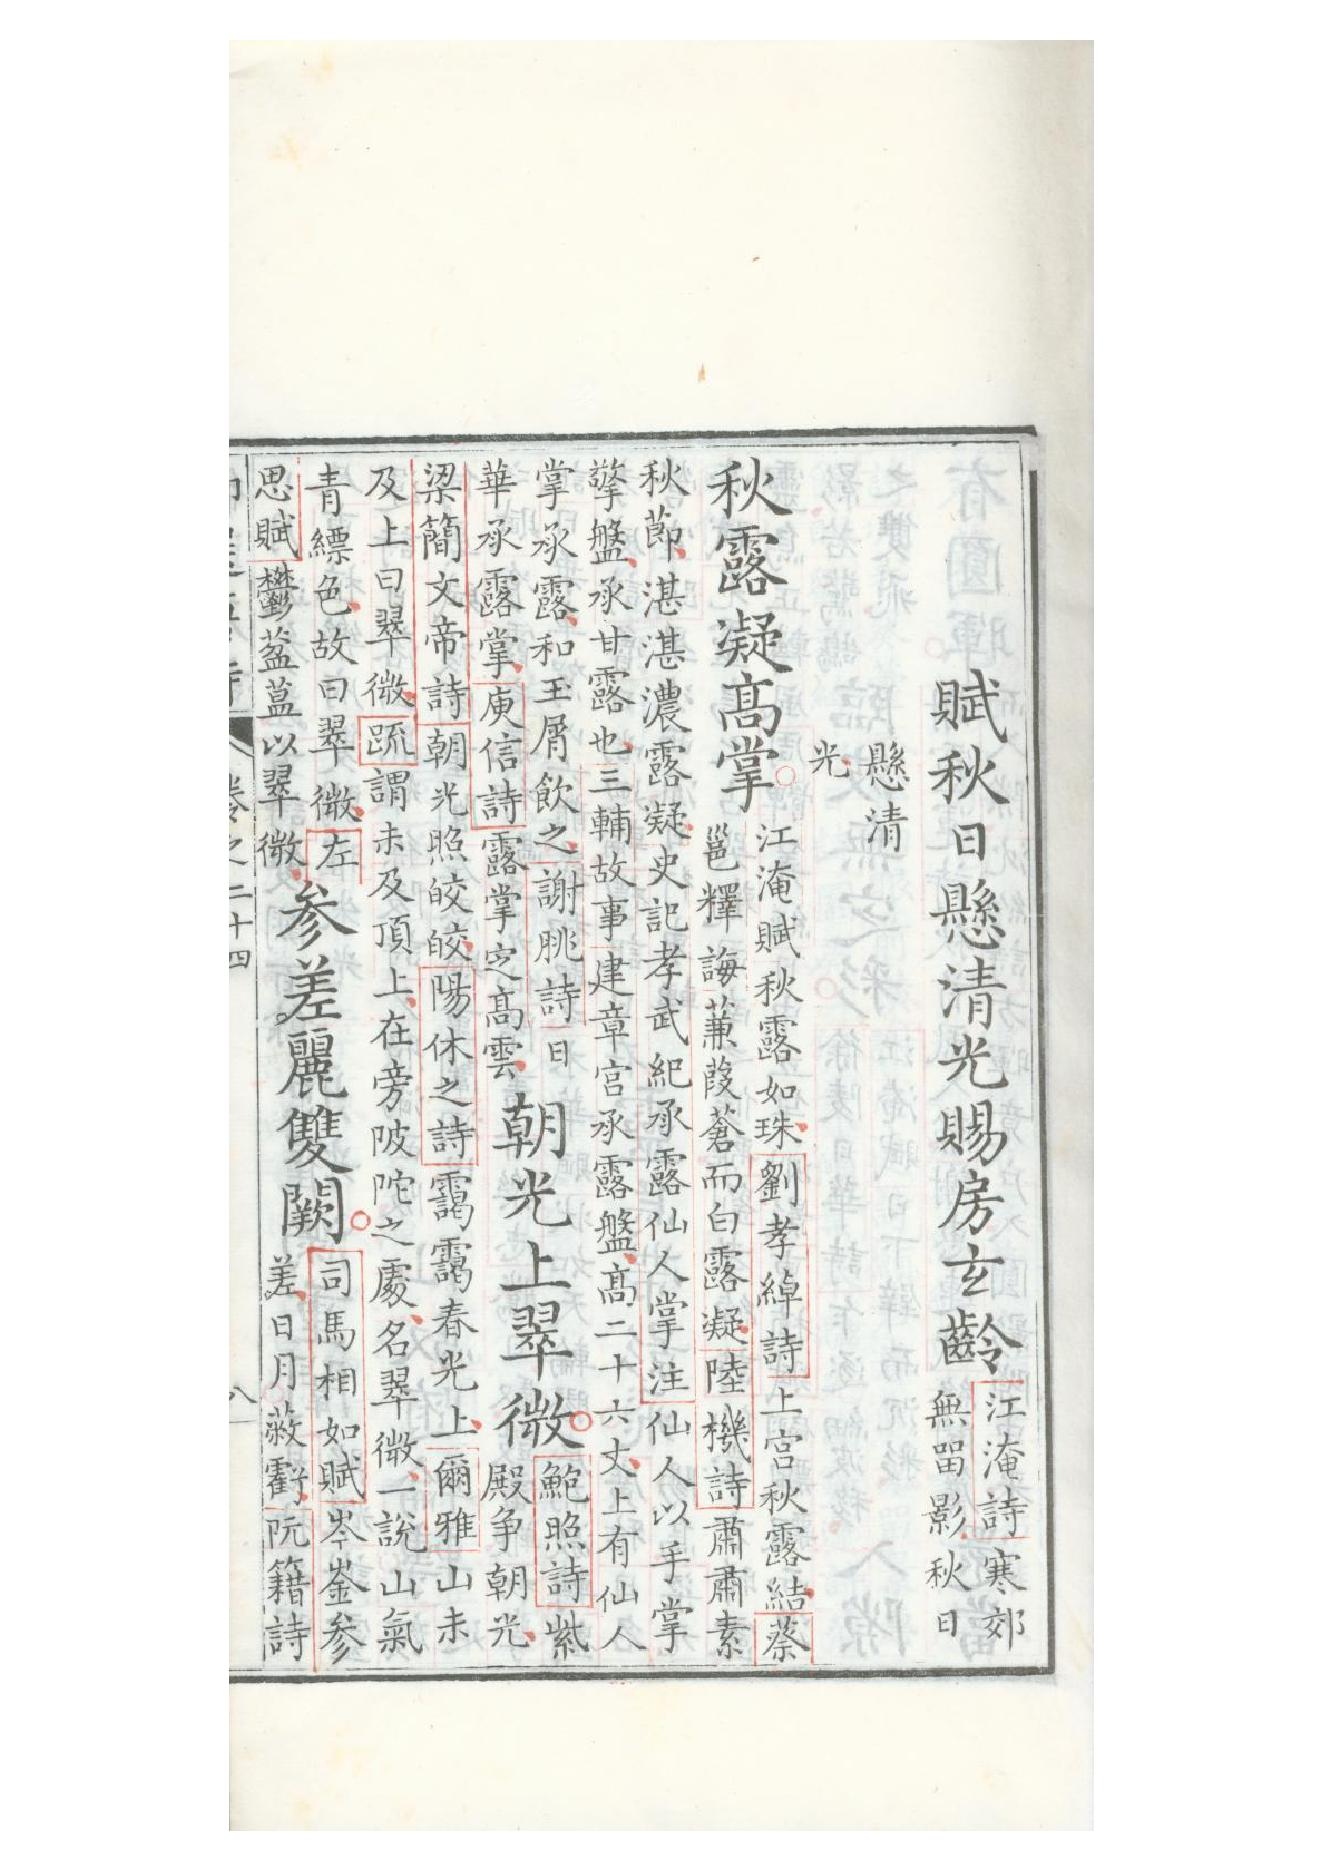 賦秋日懸清光賜房玄齡
江淹詩寒郊
無畱影秋日
懸清
光
秋露凝高掌
江淹賦秋露如珠劉孝綽詩上宮秋露結蔡
邕釋誨蒹葭蒼而白露凝陸機詩肅肅素
秋節湛湛濃露凝史記孝武紀承露仙人掌注仙人以手掌
擎盤承甘露也三輔故事建章宮承露盤高二十六丈上有仙人
掌承露和玉屑飲之謝朓詩日
華承露掌庾信詩露掌定高雲
朝光上翠微
鮑照詩紫
殿争朝光
梁簡文帝詩朝光照皎皎陽休之詩靄靄春光上爾雅山未
及上曰翠微疏謂未及頂上在旁陂陀之處名翠微一說山氣
青縹色故曰翠微左
思賦鬱葐蒕以翠微
參差麗雙闕
司馬相如賦岑崟參
差日月蔽虧阮籍詩
卷之二十四
八